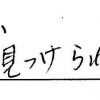 見つけられ